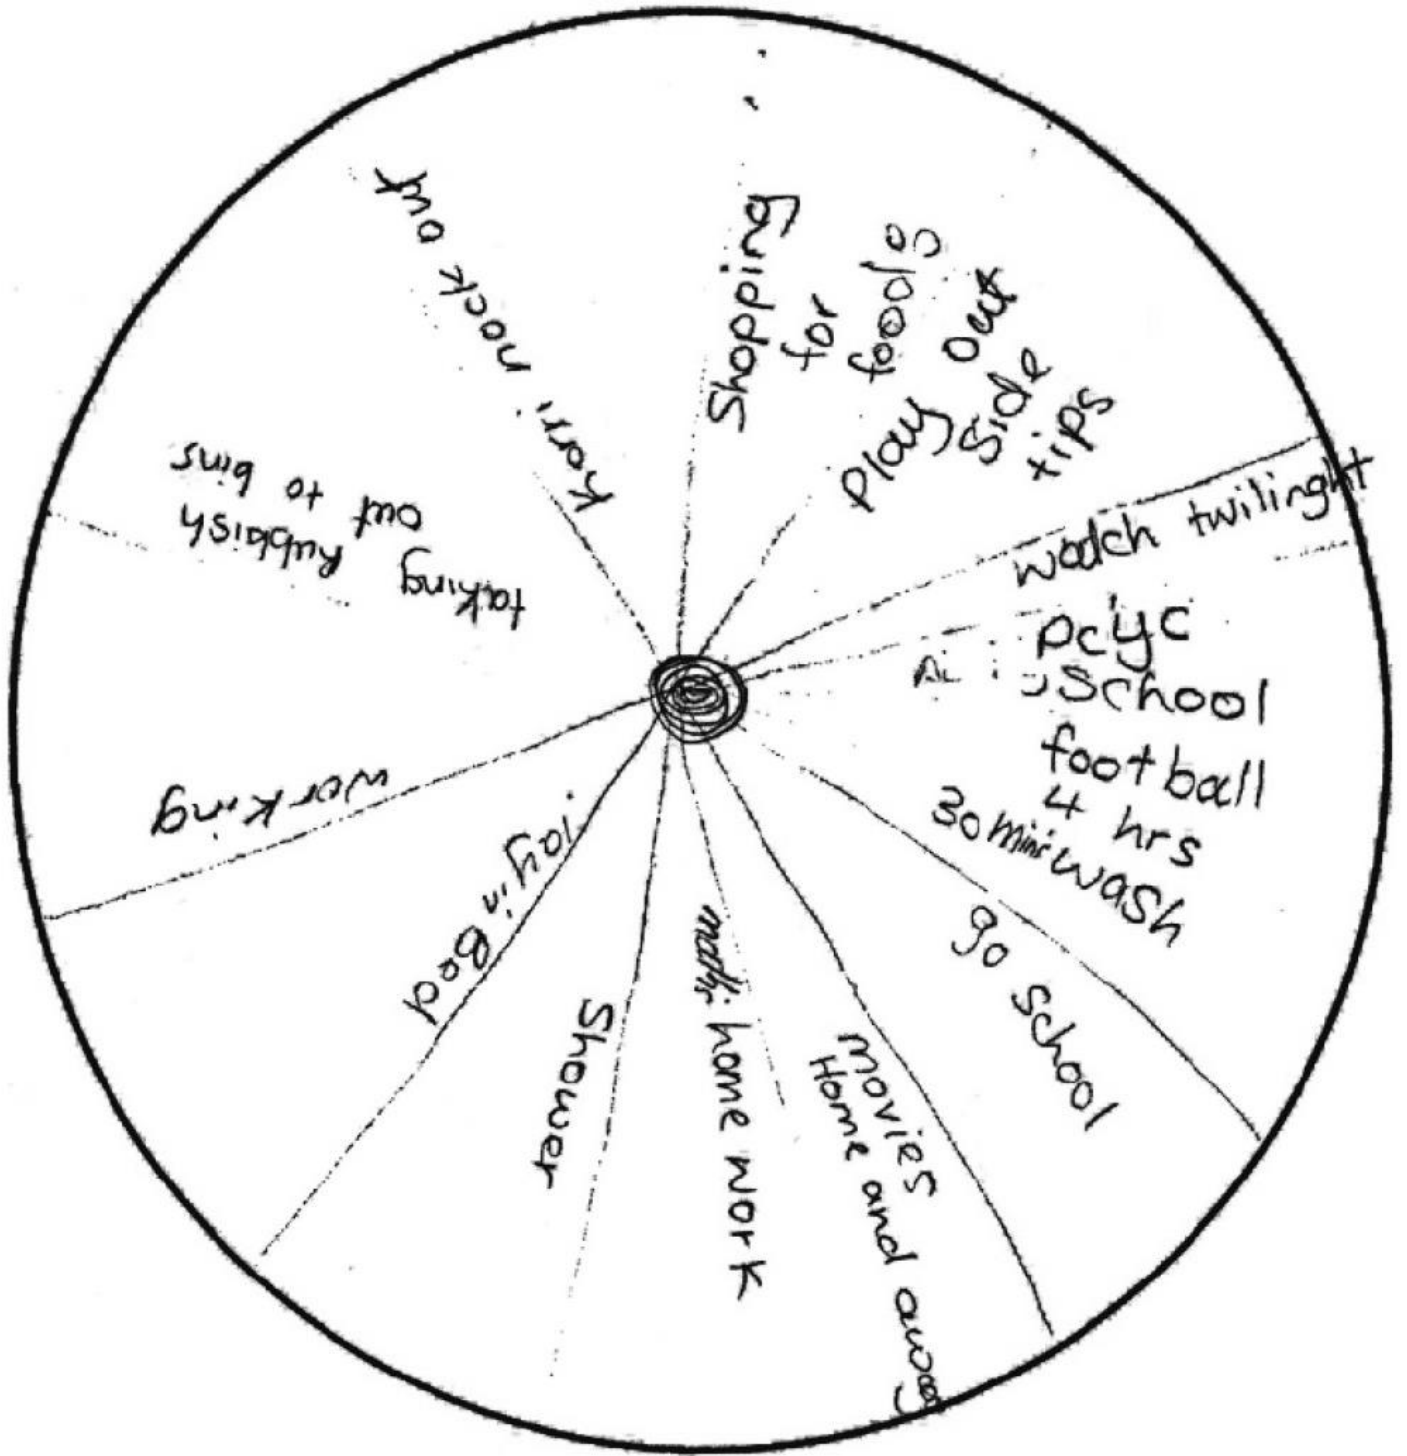 Shopping
for
foods
Play out
side
tips
watch twilinght
pcyc
school
football
4 hrs
30 mins wash
go school
movies
Home and away
home work
Shower
lay in Bed
working
taking Rubbish
out to bins
nock out